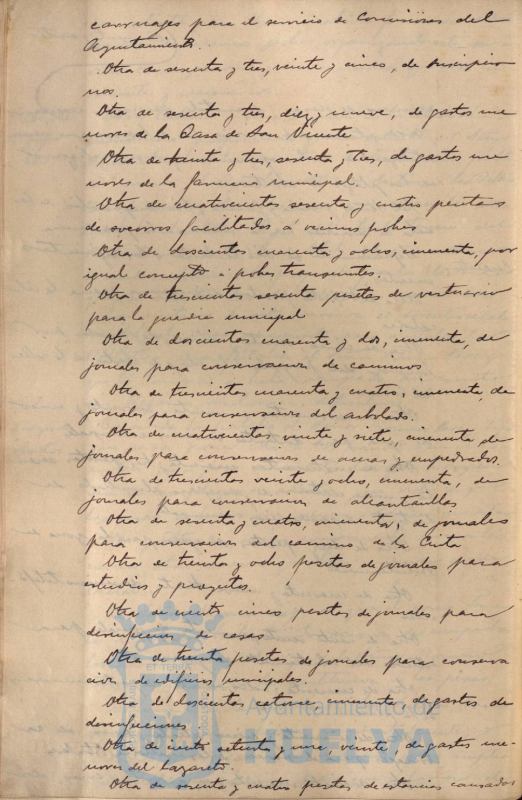 carruages para el servicio de Comisiones del
Ayuntamiento.
Otra de sesenta y tres, veinte y cinco, de suscripcio
nes.
Otra de sesenta y tres, diez y nueve, de gastos me
nores de la Casa de San Vicente
Otra de treinta y tres, sesenta y tres, de gastos me
nores de la farmacia municipal.
Otra de cuatrocientas sesenta y cuatro pesetas
de socorros facilitados á vecinos pobres
Otra de doscientas cuarenta y ocho, cincuenta, por
igual concepto á pobres transeuntes.
Otra de trescientas sesenta pesetas de vestuario
para la guardia municipal
Otra de doscientas cuarenta y dos, cincuenta, de
jornales para conservacion de caminos
Otra de trescientas cuarenta y cuatro, cincuenta, de
jornales para conservacion del arbolado.
Otra de cuatrocientas veinte y siete, cincuenta, de
jornales para conservacion de aceras y empedrados.
Otra de trescientas veinte y ocho, cincuenta, de
jornales para conservacion de alcantarillas
Otra de sesenta y cuatro, cincuenta, de jornales
para conservacion del camino de la Cinta
Otra de treinta y ocho pesetas de jornales para
estudios y proyectos.
Otra de ciento cinco pesetas de jornales para
desinfeccion de casas
Otra de treinta pesetas de jornales para conserva
cion de edificios municipales.
Otra de doscientas catorce, cincuenta, de gastos de
desinfecciones
Otra de ciento setenta y una, veinte, de gastos me-
nores del Lazareto.
Otra de sesenta y cuatro pesetas de estancias causadas
Ayuntamiento de
HUELVA